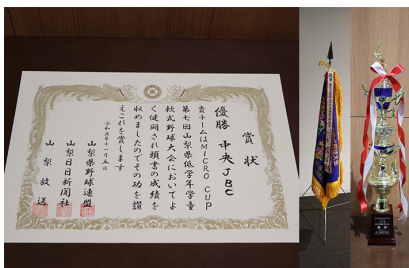 賞状
優勝 中央JBC
貴チームはMICRO CUP
第七回山梨県低学年学童
軟式野球大会においてよ
く健闘され頭書の成績を
収めましたのでその功を讃
えこれを賞します
令和五年十一月五日
山梨県野球連盟
山梨日日新聞社
山梨放送